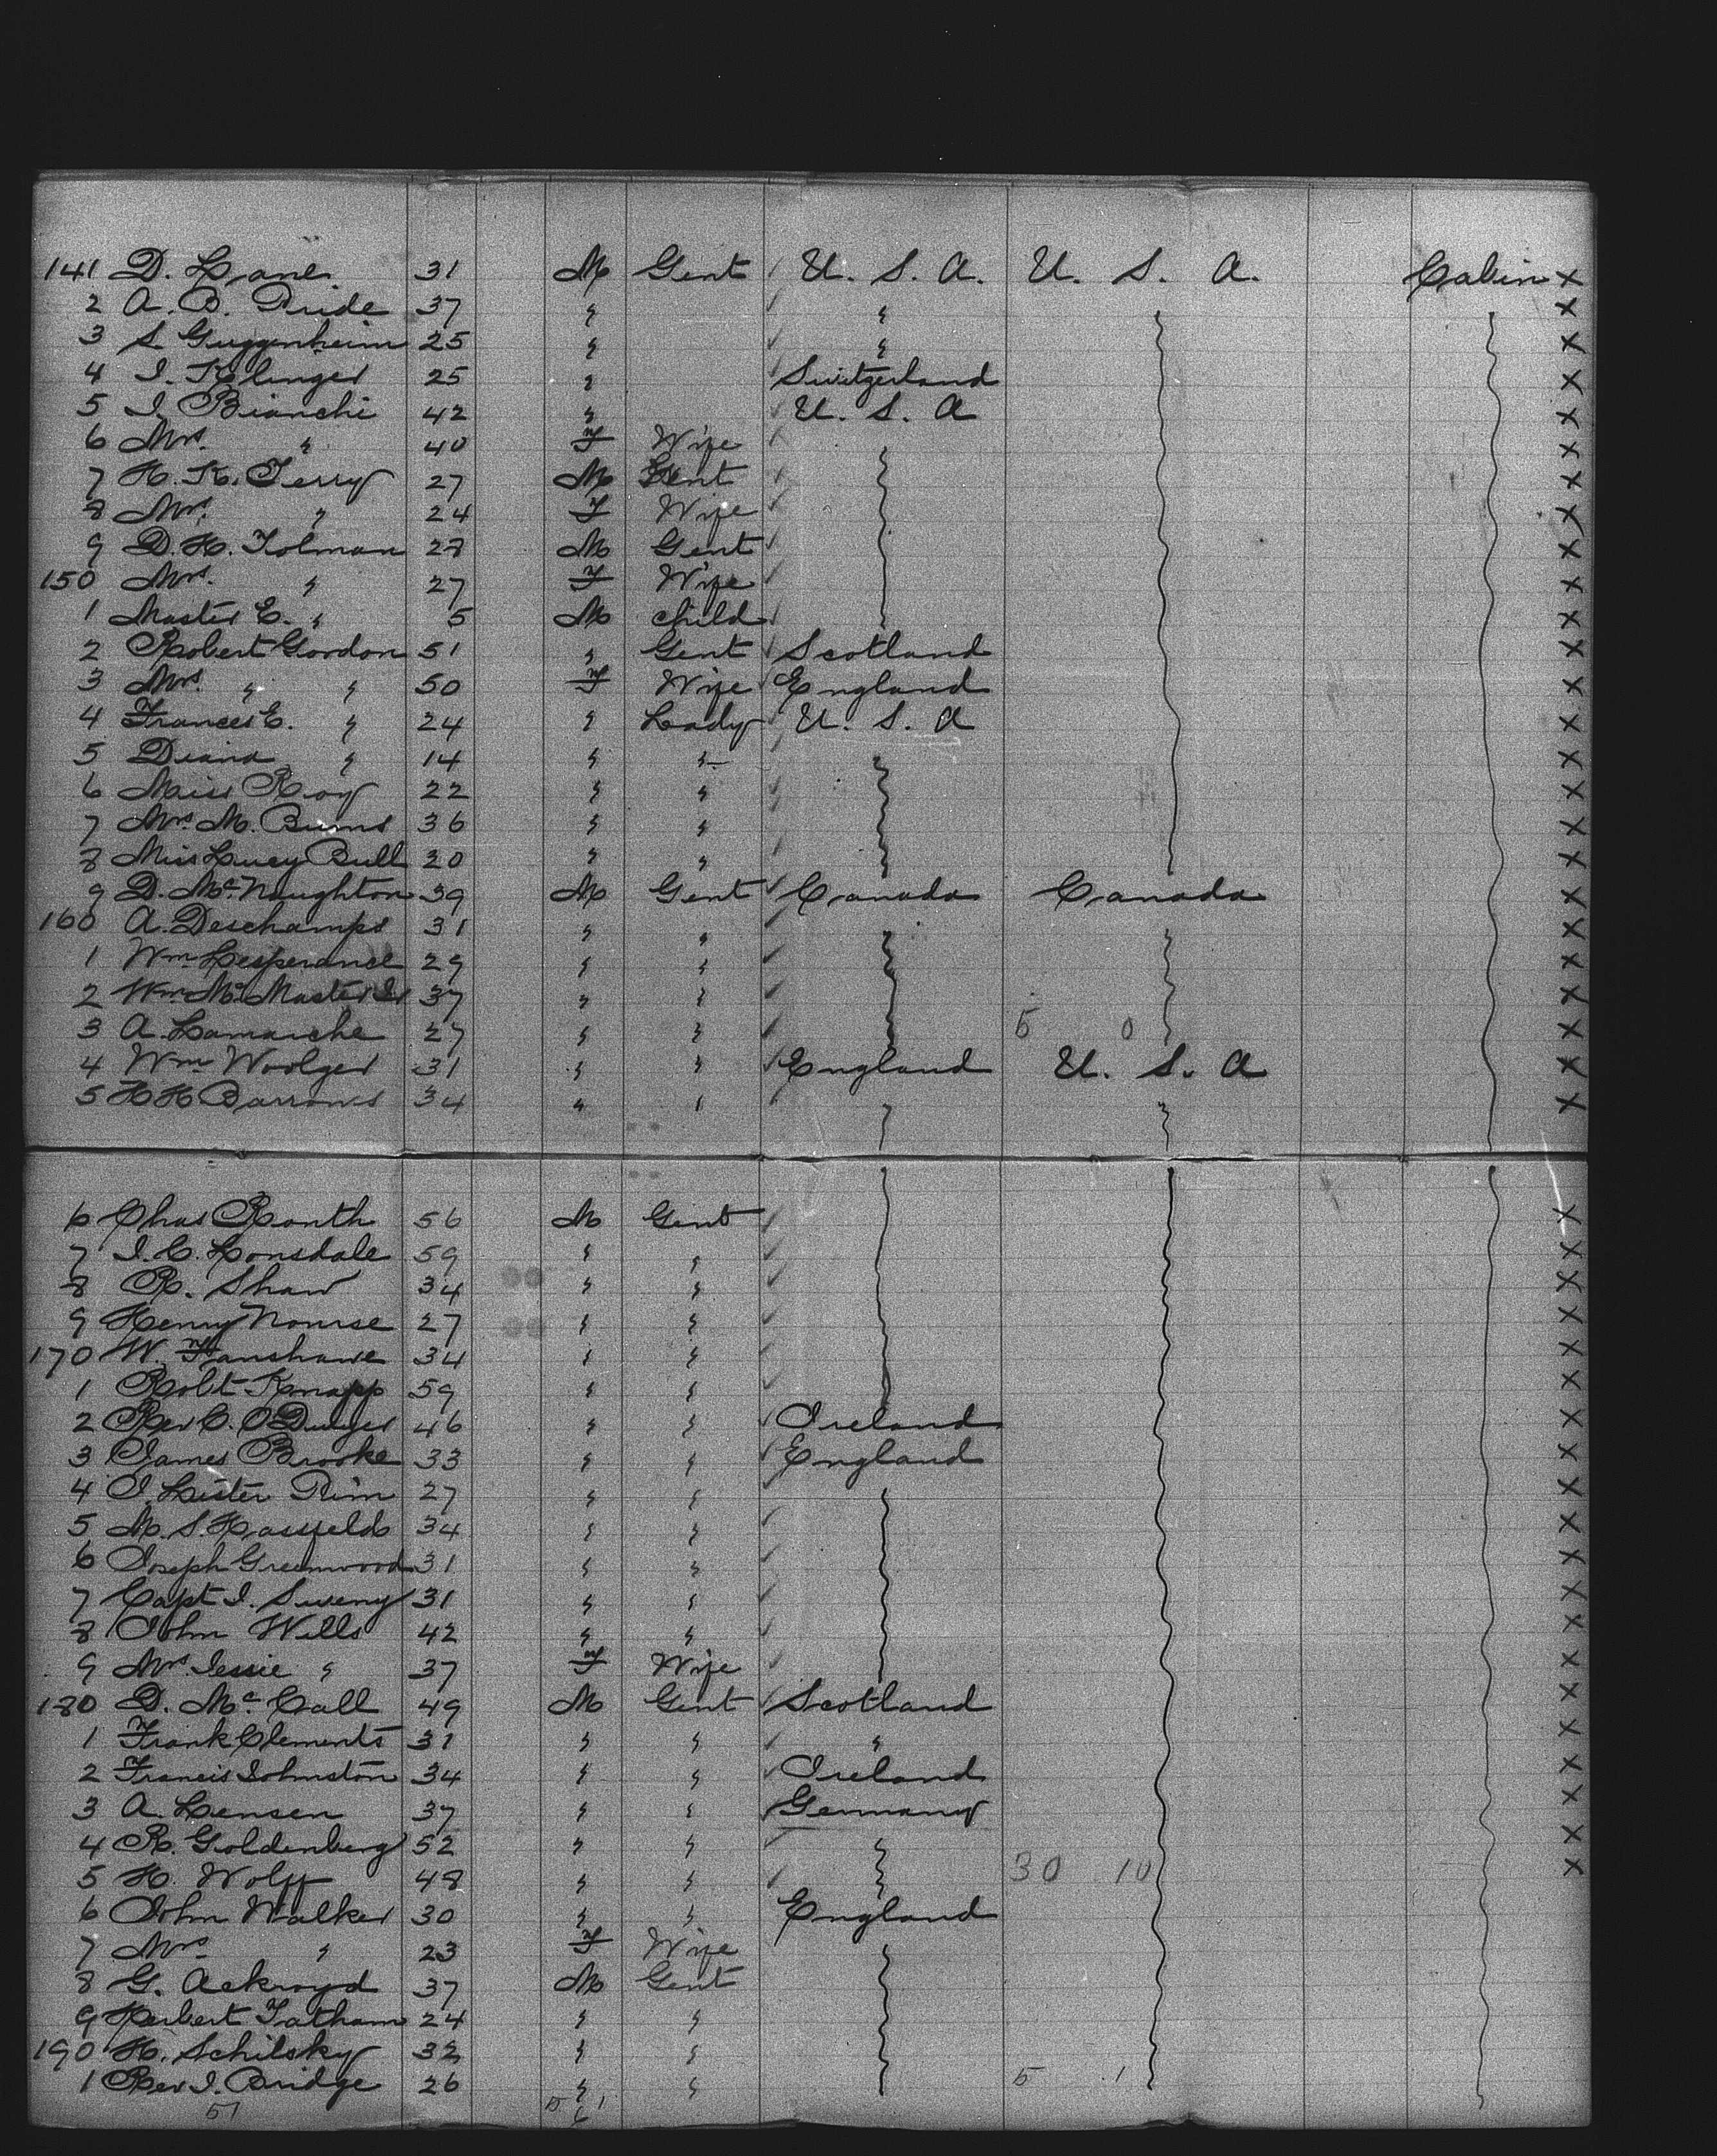 141 D. Lane 31 M Gent U. S. A. U. S. A. Cabin X
2 A. B. Pride 37 " " X
3 S. Guggenheim 25 " " X
4 I. Klinger 25 " Switzerland X
5 I. Bianchi 42 " U. S. A X
6 Mrs. " 40 F Wife X
7 H. K. Terry 27 M Gent X
8 Mrs. " 24 F Wife X
9 D. H. Tolman 27 M Gent X
150 Mrs. " 27 F Wife X
1 Master E. " 5 M child X
2 Robert Gordon 51 " Gent Scotland X
3 Mrs. " " 50 F Wife England X
4 Frances E. " 24 " Lady U. S. A X
5 Diana " 14 " " X
6 Miss Roy 22 " " X
7 Mrs. M. Burns 36 " " X
8 Miss Lucy Bull 20 " " X
9 D. McNaughton 39 M Gent Canada Canada X
160 A. Deschamps 31 " " X
1 Wm Lesperance 29 " " X
2 Wm McMaster Jr 37 " " X
3 A. Lamarche 27 " " 5 0 X
4 Wm Woolger 31 " " England U. S. A X
5 H H Barrows 34 " " X
6 Chas Routh 56 M Gent X
7 I. C. Lonsdale 59 " " X
8 R. Shaw 34 " " X
9 Henry Nourse 27 " " X
170 W. Fanshawe 34 " " X
1 Robt Knapp 59 " " X
2 Rev C. O'Dwyer 46 " " Ireland X
3 James Brooke 33 " " England X
4 I. Lister Pim 27 " " X
5 M. S. 34 " " X
6 Joseph Greenwood 31 " " X
7 Capt I. Sweny 31 " " X
8 John Wells 42 " " X
9 Mrs. Jessie " 37 F Wife X
180 D. McCall 49 M Gent Scotland X
1 Frank Clements 31 " " " X
2 Francis Johnston 34 " " Ireland X
3 A. Lensen 37 " " Germany X
4 R. Goldenberg 52 " " X
5 H. Wolff 48 " " 30 10 X
6 John Walker 30 " " England
7 Mrs " 23 F Wife
8 G. Ackroyd 37 M Gent
9 Herbert Tatham 24 " "
190 H. Schilsky 32 " "
1 Rev I. Bridge 26 " " 5 1
51